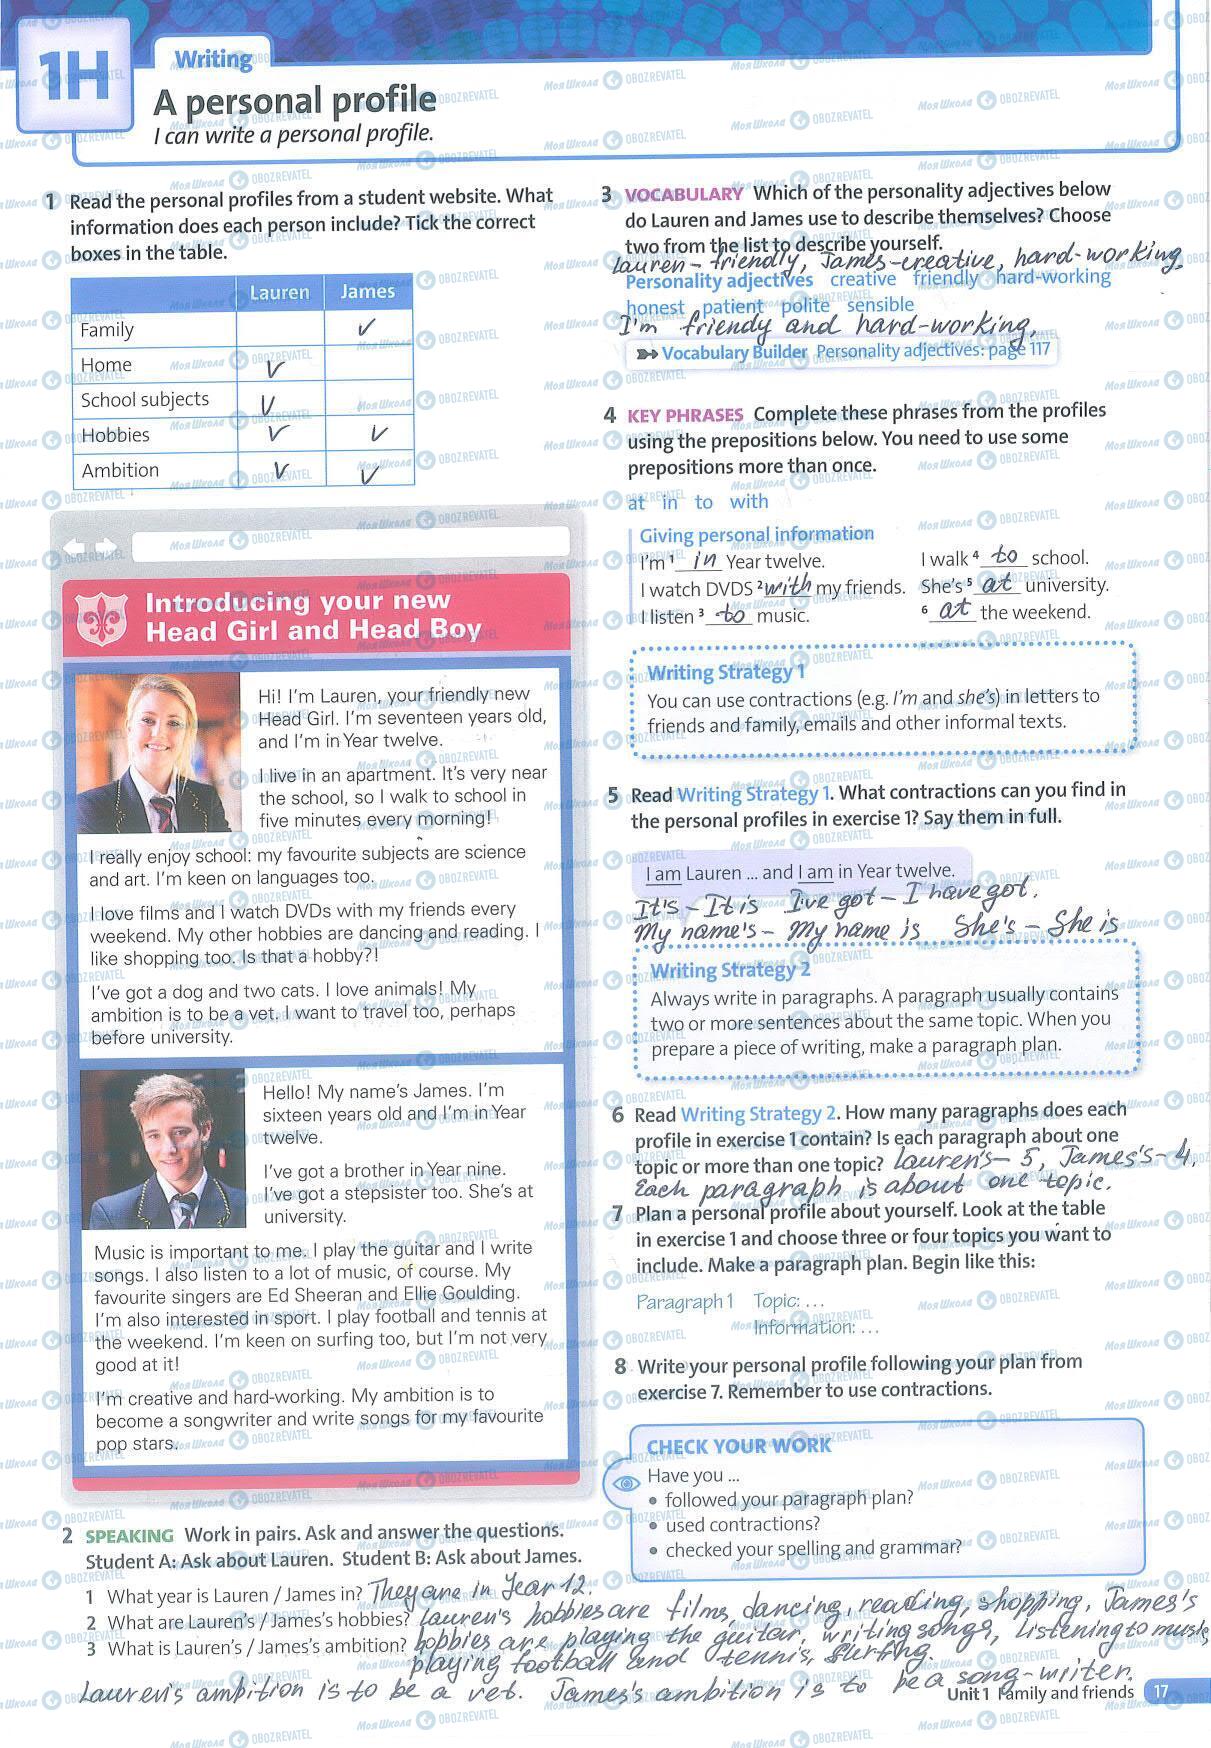 1H
Writing
A personal profile
I can write a personal profile.
1 Read the personal profiles from a student website. What
information does each person include? Tick the correct
boxes in the table.
Lauren James
Family ✓
Home ✓
School subjects ✓
Hobbies ✓ ✓
Ambition ✓ ✓
Introducing your new
Head Girl and Head Boy
Hi! I'm Lauren, your friendly new
Head Girl. I'm seventeen years old,
and I'm in Year twelve.
I live in an apartment. It's very near
the school, so I walk to school in
five minutes every morning!
I really enjoy school: my favourite subjects are science
and art. I'm keen on languages too.
I love films and I watch DVDs with my friends every
weekend. My other hobbies are dancing and reading. I
like shopping too. Is that a hobby?!
I've got a dog and two cats. I love animals! My
ambition is to be a vet. I want to travel too, perhaps
before university.
Hello! My name's James. I'm
sixteen years old and I'm in Year
twelve.
I've got a brother in Year nine.
I've got a stepsister too. She's at
university.
Music is important to me. I play the guitar and I write
songs. I also listen to a lot of music, of course. My
favourite singers are Ed Sheeran and Ellie Goulding.
I'm also interested in sport. I play football and tennis at
the weekend. I'm keen on surfing too, but I'm not very
good at it!
I'm creative and hard-working. My ambition is to
become a songwriter and write songs for my favourite
pop stars.
2 SPEAKING Work in pairs. Ask and answer the questions.
Student A: Ask about Lauren. Student B: Ask about James.
1 What year is Lauren / James in? They are in Year 12.
2 What are Lauren's / James's hobbies? Lauren's hobbies are films, dancing, reading, shopping. James's
3 What is Lauren's / James's ambition? hobbies are playing the guitar, writing songs, listening to music,
playing football and tennis, surfing.
Lauren's ambition is to be a vet. James's ambition is to be a song-writer.
3 VOCABULARY Which of the personality adjectives below
do Lauren and James use to describe themselves? Choose
two from the list to describe yourself.
Lauren - friendly, James - creative, hard-working.
Personality adjectives creative friendly hard-working
honest patient polite sensible
I'm friendy and hard-working.
Vocabulary Builder Personality adjectives: page 117
4 KEY PHRASES Complete these phrases from the profiles
using the prepositions below. You need to use some
prepositions more than once.
at in to with
Giving personal information
I'm 1 in Year twelve. I walk 4 to school.
I watch DVDS 2 with my friends. She's 5 at university.
I listen 3 to music. 6 at the weekend.
Writing Strategy 1
You can use contractions (e.g. I'm and she's) in letters to
friends and family, emails and other informal texts.
5 Read Writing Strategy 1. What contractions can you find in
the personal profiles in exercise 1? Say them in full.
I am Lauren ... and I am in Year twelve.
It's - It is I've got - I have got.
My name's - My name is She's - She is
Writing Strategy 2
Always write in paragraphs. A paragraph usually contains
two or more sentences about the same topic. When you
prepare a piece of writing, make a paragraph plan.
6 Read Writing Strategy 2. How many paragraphs does each
profile in exercise 1 contain? Is each paragraph about one
topic or more than one topic? Lauren's - 5, James's - 4.
Each paragraph is about one topic.
7 Plan a personal profile about yourself. Look at the table
in exercise 1 and choose three or four topics you want to
include. Make a paragraph plan. Begin like this:
Paragraph 1 Topic: ...
Information: ...
8 Write your personal profile following your plan from
exercise 7. Remember to use contractions.
CHECK YOUR WORK
Have you ...
• followed your paragraph plan?
• used contractions?
• checked your spelling and grammar?
Unit 1 Family and friends 17
Моя Школа OBOZREVATEL